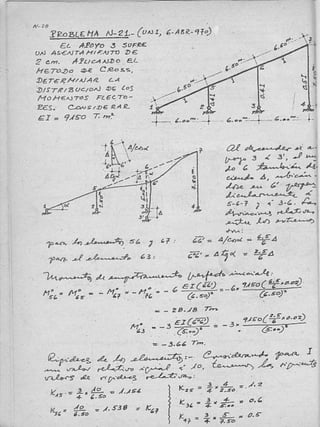 N-20
PROBLEMA N-21.- (UNI, 6-ABR-970)
EL APOYO 3 SUFRE
UN ASENTAMIENTO DE
2 cm. APLICANDO EL
METODO DE CROSS,
DETERMINAR LA
DISTRIBUCION DE LOS
MOMENTOS FLECTO-
RES. CONSIDERAR
EI = 9150 T.m²
6.50 m 6.50 m 6.50 m
6.00 m 6.00 m 6.00 m
Al descender el a-
poyo 3 á 3', el nu
do 6 también des-
ciende Δ, ubicán-
dose en 6' perpen
dicularmente á
5-6-7 y á 3-6. Las
desviaciones relativas
entre los extremos
son:
para los elementos 56 y 67: 66'' = Δ/cosα = 6.5/6 Δ
para el elemento 63: = Δ tg α = 2.5/6 Δ
Momentos de empotramiento perfecto iniciales:
M°56 = M°65 = - M°67 = - M°76 = - 6 EI(66'')/(6.50)² = - 6× 9150(6.5/6 × 0.02)/(6.50)²
= - 28.18 Tm
M°63 = - 3 EI/(5.00)² = - 3× 9150(2.5/6 × 0.02)/(5.00)²
= - 3.66 Tm.
Rigideces de los elementos:- Considerando para I
un valor relativo igual á 10, tenemos los siguientes
valores de rigideces relativas:
K15 = 3/4 × 10/6.50 = 1.154
K56 = 10/6.50 = 1.538 = K67
K25 = 3/4 × = 1.2
K36 = 3/4 × = 0.6
= 3/4 × 5/7.50 = 0.5